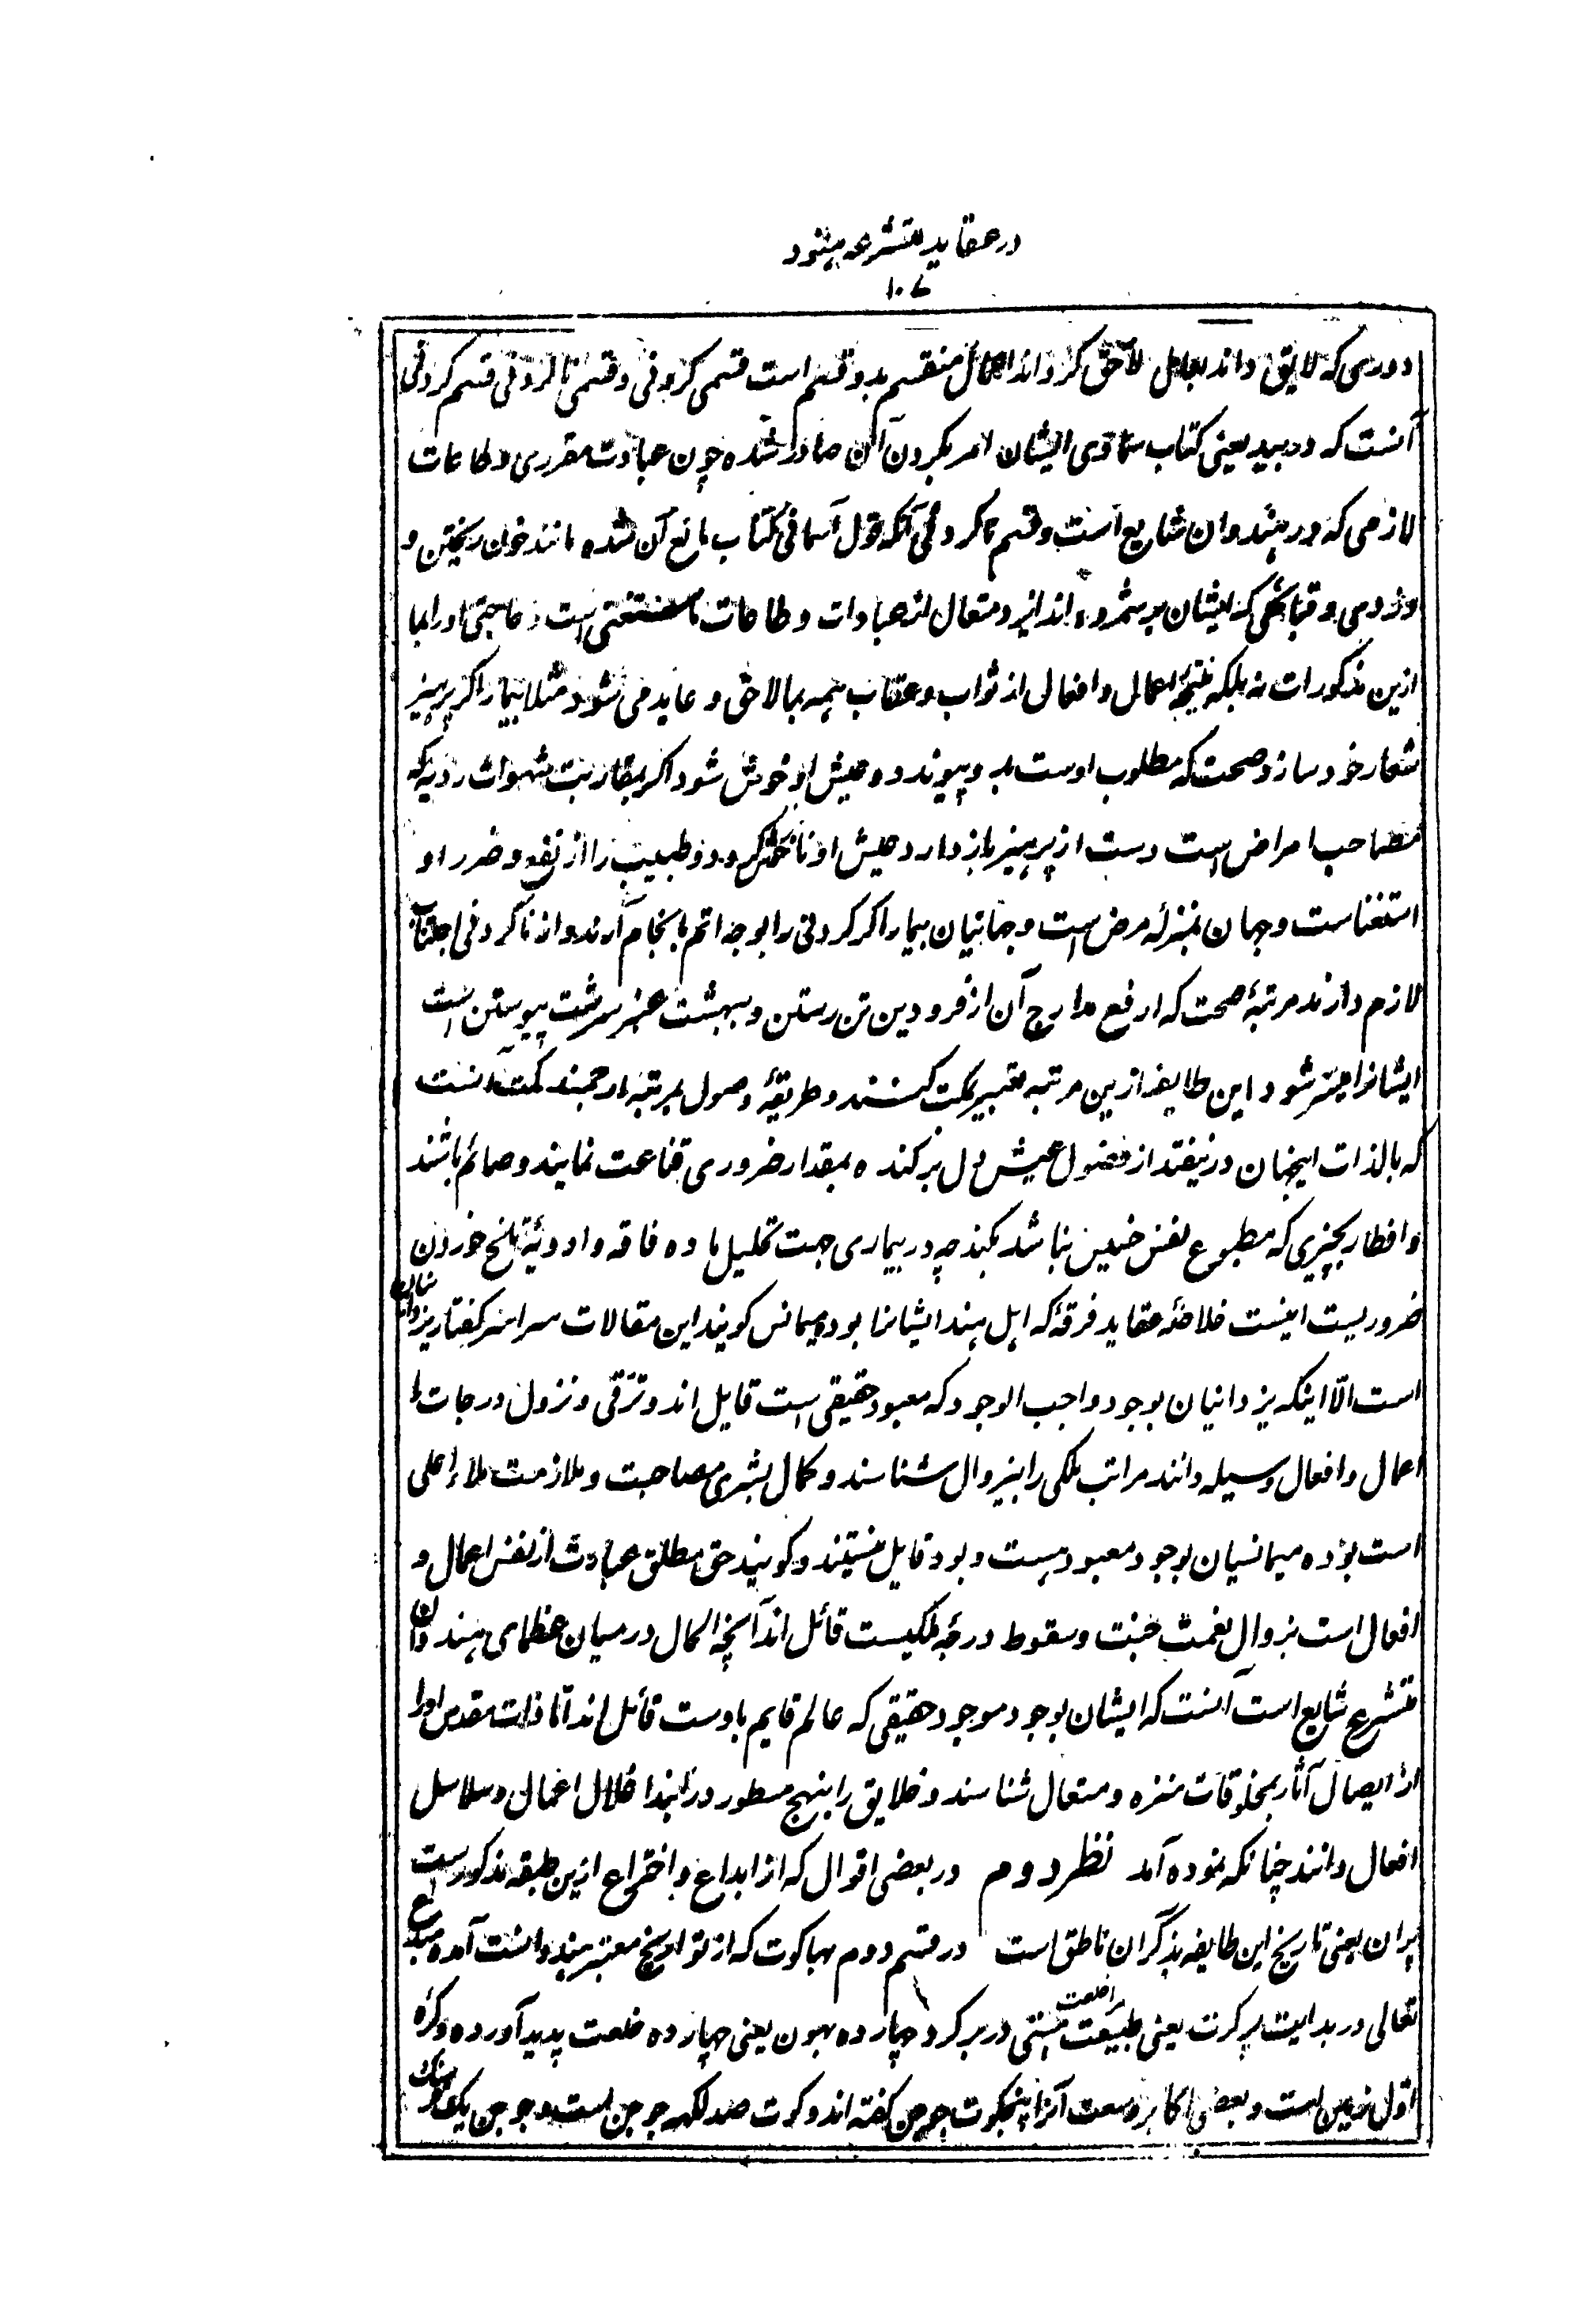 در عقاید متشرعه هنود
۱۰۷
دوری که لایق داند بعامل لاحق گرداند اعمال منقسم بدو قسم است قسمی کردنی و قسمی ناکردنی قسم کردنی
آنست که در بید یعنی کتاب سماوی ایشان امر بکردن آن صادر شده چون عبادت مقرری و طاعات
لازمی که در هندوان شایع است و قسم ناکردنی آنکه قول آسمانی کتاب مانع آن شده مانند خون ریختن و
دزدی و قبایحی که ایشان بر شمرده اند ایزد متعال از عبادات و طاعات ما مستغنی است و حاجتی او را بما
ازین مذکورات نه بلکه نتیجهٔ اعمال و افعال از ثواب و عقاب همه بما لاحق و عاید می شود مثلا بیمار اگر پرهیز
شعار خود سازد صحت که مطلوب اوست بدو پیوندد و عیش او خوش شود اگر بمقاربت شهوات ردیه که
مصاحب امراض است دست از پرهیز باز دارد عیش او ناخوش گردد و طبیب را از نفع و ضرر او
استغناست و جهان بمنزلهٔ مرض است و جهانیان بیمار اگر کردنی را بوجه اتم بانجام آرند و از ناکردنی اجتناب
لازم دارند مرتبهٔ صحت که ارفع مدارج آن از فرودین تن رستن و ببهشت عنبر سرشت پیوستن است
ایشانرا میسر شود این طایفه ازین مرتبه تعبیر بمکت کنند و طریقهٔ وصول بمرتبه ارجمند مکت آنست
که بالذات اینجهان در نیفتد از فضول عیش دل برکنده بمقدار ضروری قناعت نمایند و صائم باشند
و افطار بچیزی که مطبوع نفس خسیس نباشد بکند چه در بیماری جهت تحلیل ماده فاقه و ادویهٔ تلخ خوردن
ضروریست اینست خلاصهٔ عقاید فرقهٔ که اهل هند ایشانرا بوده میمانس گویند این مقالات سراسر گفتار یزدانیان
است الا اینکه یزدانیان بوجود واجب الوجود که معبود حقیقی است قایل اند و ترقی و نزول درجات را
اعمال و افعال وسیله دانند مراتب ملکی را بیزوال شناسند و کمال بشری مصاحبت و ملازمت ملاء اعلی
است بوده میمانسیان بوجود معبود هست و بود قایل نیستند و گویند حق مطلق عبارت از نفس اعمال و
افعال است بزوال نعمت جنت و سقوط درجهٔ ملکیست قائل اند آنچه الحال در میان عظمای هندوان
متشرع شایع است آنست که ایشان بوجود موجود حقیقی که عالم قایم باوست قائل اند اما ذات مقدس او را
از ایصال آثار بمخلوقات منزه و متعال شناسند و خلایق را بنهج مسطور در بند اغلال اعمال و سلاسل
افعال دانند چنانکه نموده آمد نظر دوم در بعضی اقوال که از ابداع و اختراع ازین طبقه مذکور است
پران یعنی تاریخ این طایفه بذکر آن ناطق است در قسم دوم بهاگوت که از تواریخ معتبر هندوانست آمده مبدع
تعالی در بدایت پرکرت یعنی طبیعت را خلعت هستی در بر کرد چهارده بهون یعنی چهارده خلعت پدید آورده و کرهٔ
اول زمین است و بعضی اکابر وسعت آنرا پنجکوت جوجن گفته اند و کوت صد لکهه جوجن است و جوجن یک